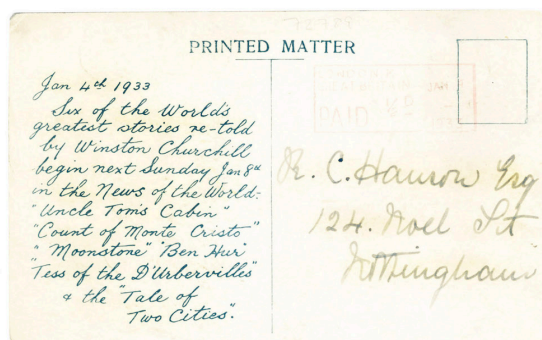 PRINTED MATTER
Jan 4th 1933
Six of the World's
greatest stories re-told
by Winston Churchill
begin next Sunday Jan 8th
in the News of the World:
"Uncle Tom's Cabin"
"Count of Monte Cristo"
"Moonstone" "Ben Hur"
"Tess of the D'Urbervilles"
& the "Tale of
Two Cities".
PAID
R. C. Hanson Esq
124. Noel St
Nottingham